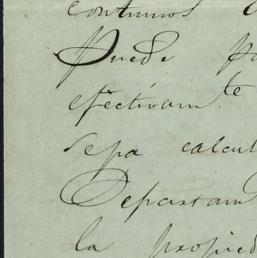 continuos
Puede
efectivamte
sepa calcul
Depastam
la propied